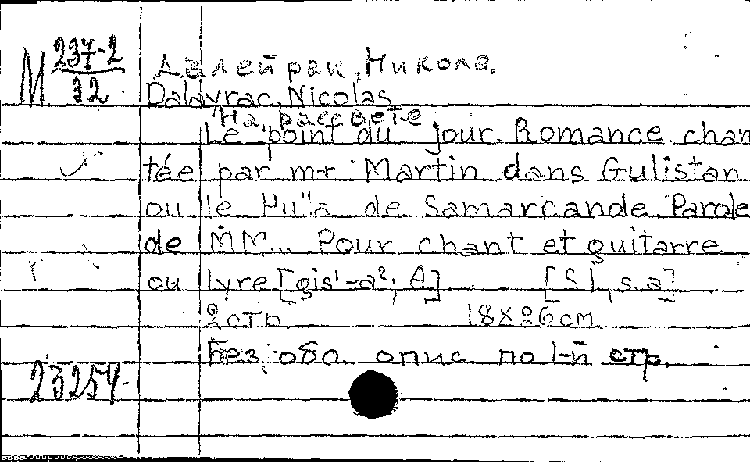 M 237-2
32
Далейрак, Никола.
Dalayrac, Nicolas
"На рассвете"
Le point du jour. Romance chan
tée par mr Martin dans Gulistan
ou le Hu"a de Samarcande. Parole
de MM... Pour chant et guitarre
ou lyre [gis¹-a²; A] [S.l., s.a]
2 стр. 18x26 cm
Без обл. опис. по 1-й стр.
23254